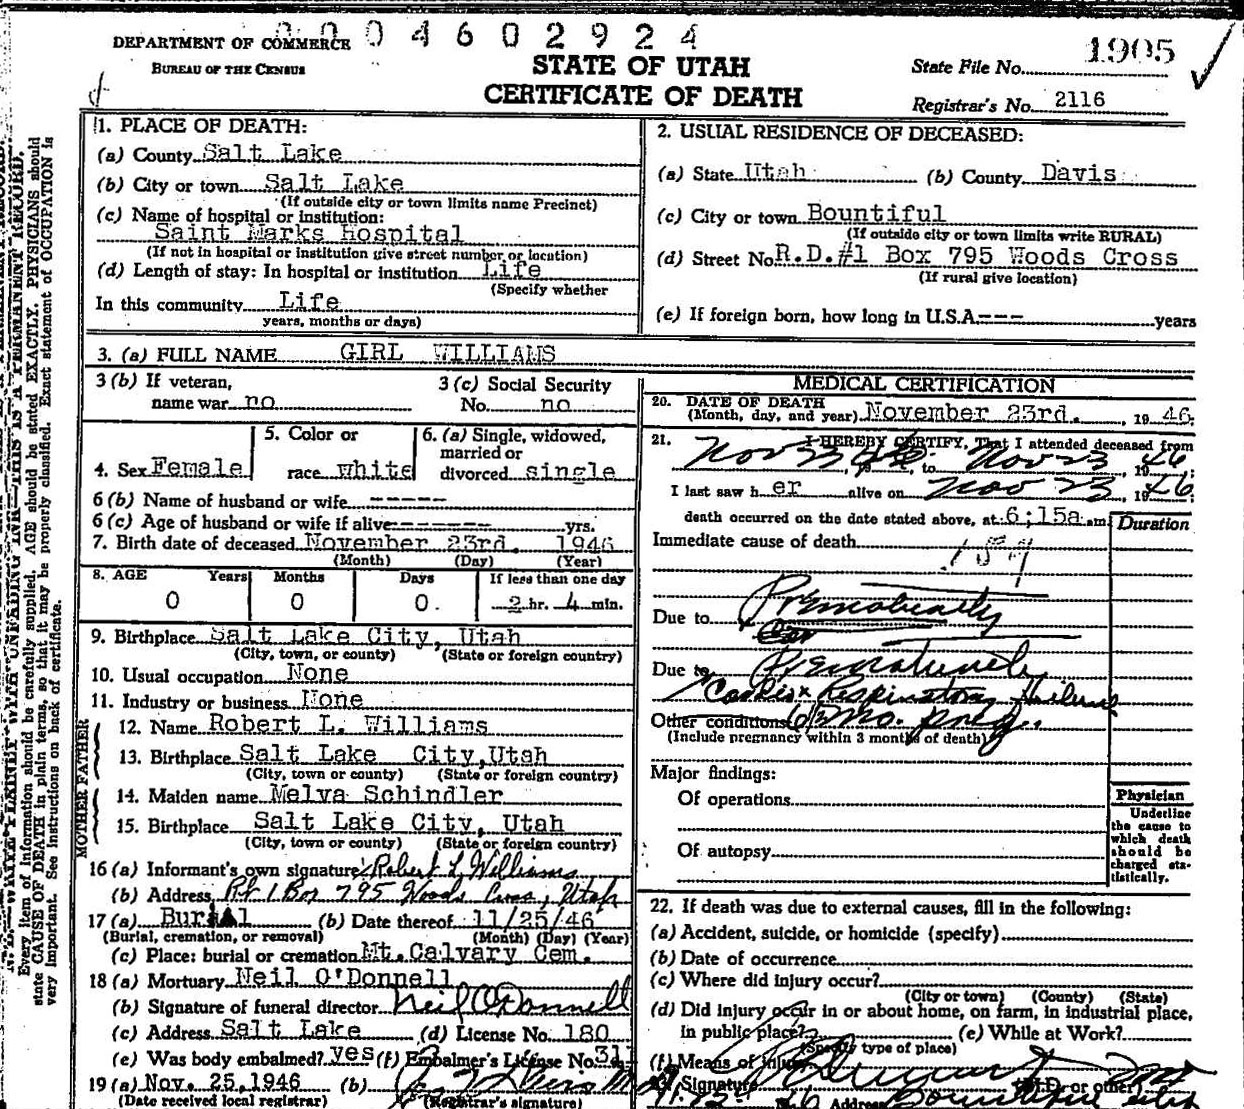 0004602924
DEPARTMENT OF COMMERCE
BUREAU OF THE CENSUS
STATE OF UTAH
CERTIFICATE OF DEATH
State File No. 1905
Registrar's No. 2116
Every item of information should be carefully supplied. AGE should be stated EXACTLY. PHYSICIANS should
state CAUSE OF DEATH in plain terms, so that it may be properly classified. Exact statement of OCCUPATION is
very important. See instructions on back of certificate.
1. PLACE OF DEATH:
(a) County Salt Lake
(b) City or town Salt Lake
(If outside city or town limits name Precinct)
(c) Name of hospital or institution:
Saint Marks Hospital
(If not in hospital or institution give street number or location)
(d) Length of stay: In hospital or institution Life
(Specify whether
In this community Life
years, months or days)
2. USUAL RESIDENCE OF DECEASED:
(a) State Utah (b) County Davis
(c) City or town Bountiful
(If outside city or town limits write RURAL)
(d) Street No. R.D.#1 Box 795 Woods Cross
(If rural give location)
(e) If foreign born, how long in U.S.A. --- years
3. (a) FULL NAME GIRL WILLIAMS
3 (b) If veteran, 3 (c) Social Security
name war no No. no
4. Sex Female
5. Color or
race white
6. (a) Single, widowed,
married or
divorced single
6 (b) Name of husband or wife -----
6 (c) Age of husband or wife if alive ------- yrs.
7. Birth date of deceased November 23rd. 1946
(Month) (Day) (Year)
8. AGE Years Months Days If less than one day
0 0 0. 2 hr. 4 min.
9. Birthplace Salt Lake City, Utah
(City, town, or county) (State or foreign country)
10. Usual occupation None
11. Industry or business None
FATHER
12. Name Robert L. Williams
13. Birthplace Salt Lake City, Utah
(City, town or county) (State or foreign country)
MOTHER
14. Maiden name Melva Schindler
15. Birthplace Salt Lake City, Utah
(City, town or county) (State or foreign country)
16 (a) Informant's own signature Robert L Williams
(b) Address Rt 1 Box 795 Woods Cross, Utah
17 (a) Burial (b) Date thereof 11/25/46
(Burial, cremation, or removal) (Month) (Day) (Year)
(c) Place: burial or cremation Mt. Calvary Cem.
18 (a) Mortuary Neil O'Donnell
(b) Signature of funeral director Neil O'Donnell
(c) Address Salt Lake (d) License No. 180
(e) Was body embalmed? yes (f) Embalmer's License No. 311
19 (a) Nov. 25, 1946 (b)
(Date received local registrar) (Registrar's signature)
MEDICAL CERTIFICATION
20. DATE OF DEATH
(Month, day, and year) November 23rd. 1946.
21. I HEREBY CERTIFY, That I attended deceased from
Nov 23 46, to Nov 23 1946
I last saw her alive on Nov 23, 1946
death occurred on the date stated above, at 6:15a m.
Duration
Immediate cause of death
159
Prematurity
Due to
Due to Prematurity
Cardiac & Respiratory Failure
Other conditions 6½ mo. preg.
(Include pregnancy within 3 months of death)
Major findings:
Of operations
Of autopsy
Physician
Underline
the cause to
which death
should be
charged sta-
tistically.
22. If death was due to external causes, fill in the following:
(a) Accident, suicide, or homicide (specify)
(b) Date of occurrence
(c) Where did injury occur?
(City or town) (County) (State)
(d) Did injury occur in or about home, on farm, in industrial place,
in public place? (e) While at Work?
(Specify type of place)
(f) Means of injury
Signature (M.D. or other)
Address Bountiful Utah